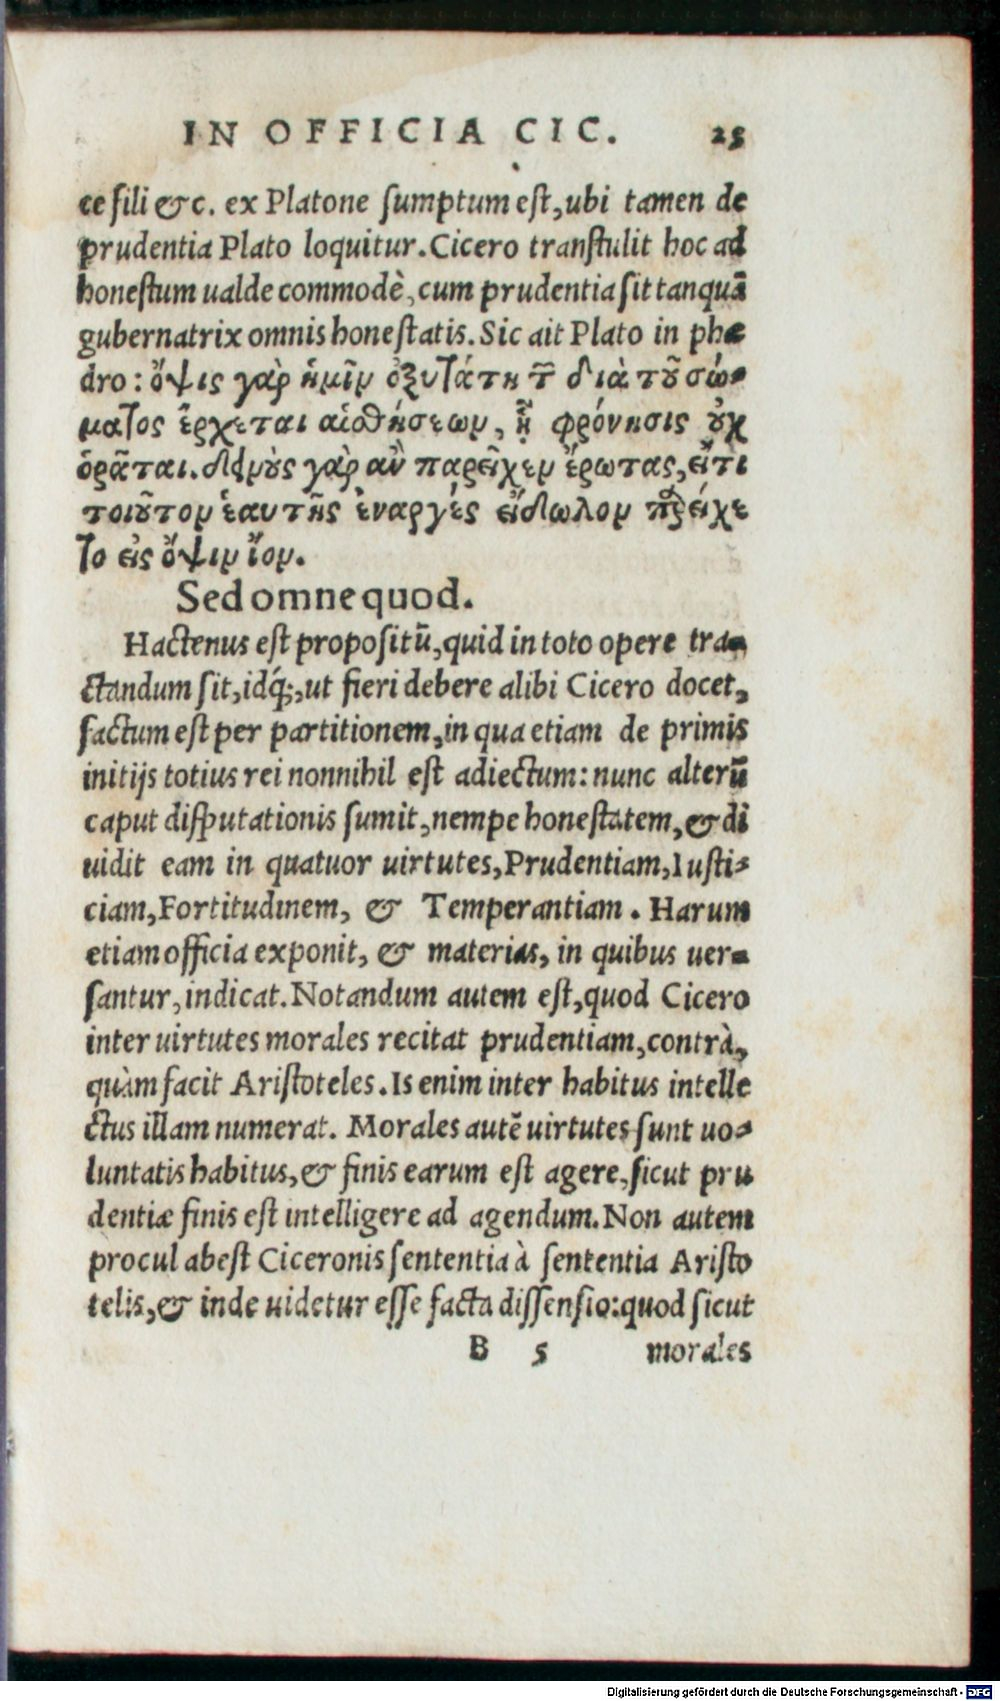 IN OFFICIA CIC. 25
ce fili &c. ex Platone sumptum est, ubi tamen de
prudentia Plato loquitur. Cicero transtulit hoc ad
honestum ualde commodè, cum prudentia sit tanquā
gubernatrix omnis honestatis. Sic ait Plato in phæ
dro: ὄψις γὰρ ἡμῖν ὀξυτάτη τ̃ διὰ τοῦ σώ-
ματος ἔρχεται αἰσθήσεων, ᾗ φρόνησις οὐχ
ὁρᾶται. δεινοὺς γὰρ ἂν παρεῖχεν ἔρωτας, εἴ τι
τοιοῦτον ἑαυτῆς ἐναργὲς εἴδωλον παρείχε
το εἰς ὄψιν ἰὸν.
Sed omne quod.
Hactenus est propositū, quid in toto opere tra-
ctandum sit, idq́;, ut fieri debere alibi Cicero docet,
factum est per partitionem, in qua etiam de primis
initijs totius rei nonnihil est adiectum: nunc alterū
caput disputationis sumit, nempe honestatem, & di
uidit eam in quatuor uirtutes, Prudentiam, Iusti-
ciam, Fortitudinem, & Temperantiam. Harum
etiam officia exponit, & materias, in quibus uer-
santur, indicat. Notandum autem est, quod Cicero
inter uirtutes morales recitat prudentiam, contrà,
quàm facit Aristoteles. Is enim inter habitus intelle
ctus illam numerat. Morales autē uirtutes sunt uo-
luntatis habitus, & finis earum est agere, sicut pru
dentiæ finis est intelligere ad agendum. Non autem
procul abest Ciceronis sententia à sententia Aristo
telis, & inde uidetur esse facta dissensio: quod sicut
B 5 morales
Digitalisierung gefördert durch die Deutsche Forschungsgemeinschaft - DFG